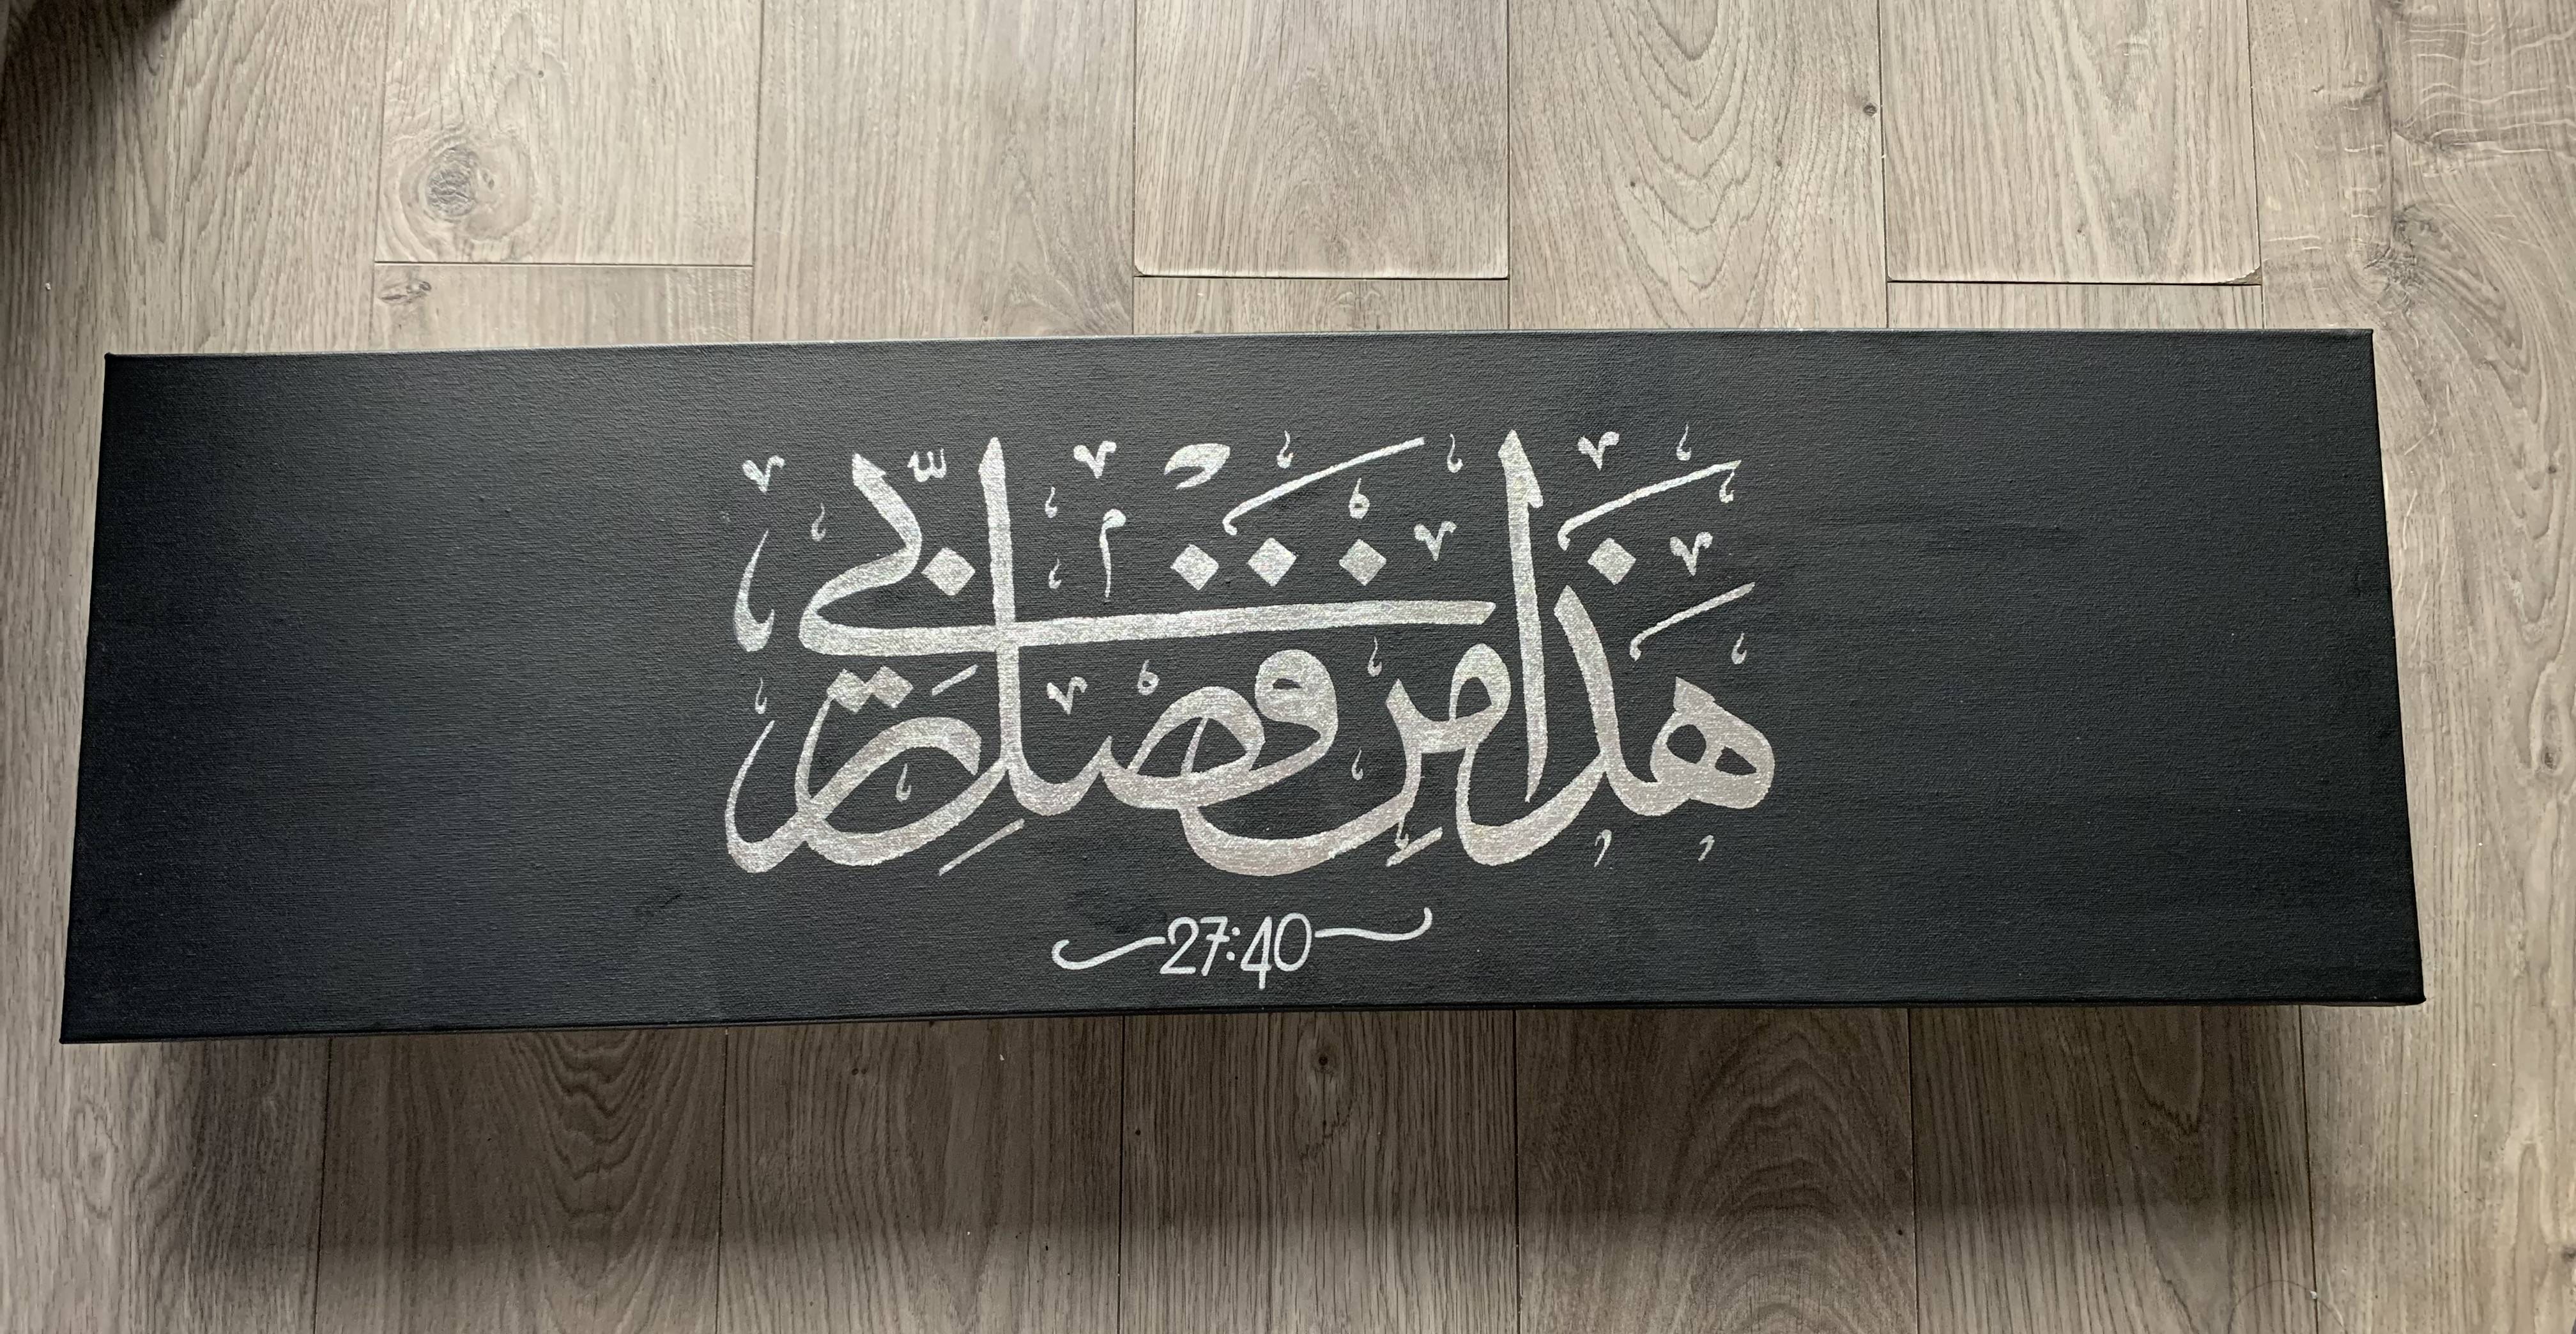 هَذَا مِنْ فَضْلِ رَبِّي
27:40